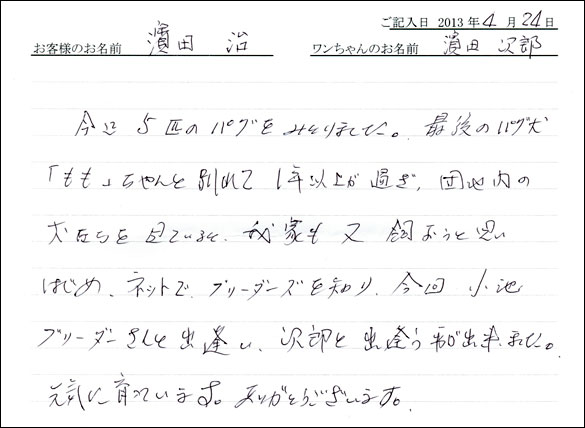 ご記入日 2013年4月24日
お客様のお名前 濱田 治 ワンちゃんのお名前 濱田 次郎
今迄5匹のパグをみとりました。最後のパグ犬
「もも」ちゃんと別れて1年以上が過ぎ、団地内の
犬たちを見ていると、我家も又飼おうと思い
はじめ、ネットで、ブリーダーズを知り、今回小池
ブリーダーさんと出逢い、次郎と出逢う事が出来ました。
元気に育っています。ありがとうございます。